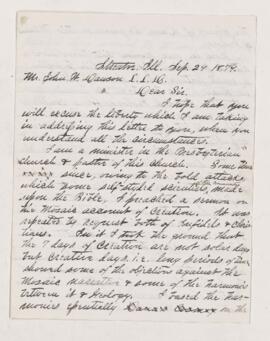 Streator, Ill. Sep. 24 1879.
Mr. John W. Dawson L.L.D.
Dear Sir.
I hope that you
will excuse the liberty which I am taking
in addressing this letter to you, when you
understand all the circumstances.
I am a minister in the Presbyterian
church & pastor of this church. Some time
since, owing to the bold attacks
which some self-styled scientists, made
upon the Bible, I preached a sermon on
the Mosaic account of Creation. It was
repeated by request both of infidels & Chris
tians. In it I took the ground that
the 7 days of Creation are not solar days
but creative days, i.e. long periods of time
showed some of the objections against the
Mosaic narrative & some of the harmonies
between it & Geology. I based the har-
monies especially on the